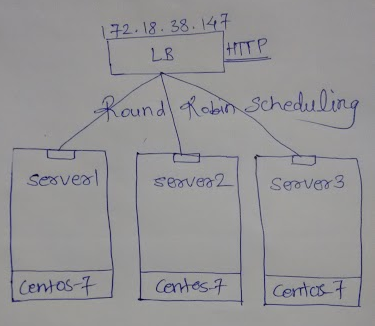 172.18.38.147
LB HTTP
Round Robin Scheduling
Server1 Server2 Server3
Centos-7 Centos-7 Centos-7